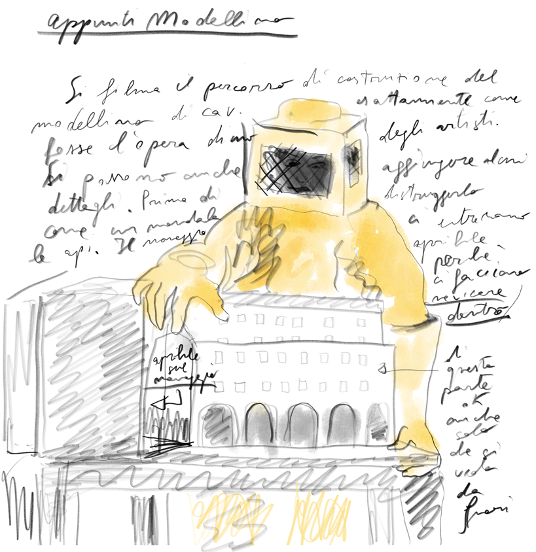 appunti Modellino
Si filma il percorso di costruzione del
modellino di cav. esattamente come
fosse l'opera di uno degli artisti.
Si possono anche aggiungere alcuni
dettagli. Prima di distruggerlo
come un mandala a
le api. Il apribile
perché
ci facciano
dentro
apribile
sul
di
questa
parte
ok
anche
solo
de si
veda
da
fuori